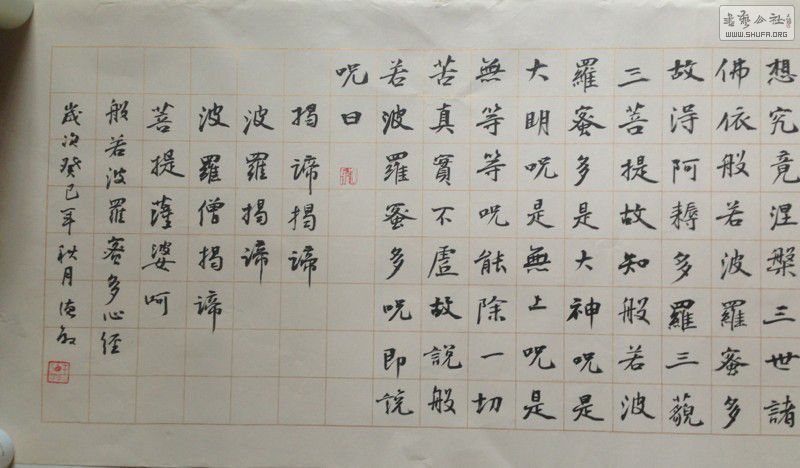 想究竟涅槃三世諸
佛依般若波羅蜜多
故淂阿耨多羅三藐
三菩提故知般若波
羅蜜多是大神咒是
大明咒是無上咒是
無等等咒能除一切
苦真實不虛故說般
若波羅蜜多咒即說
咒曰
揭諦揭諦
波羅揭諦
波羅僧揭諦
菩提薩婆呵
般若波羅蜜多心經
歲次癸巳年秋月
WWW.SHUFA.ORG